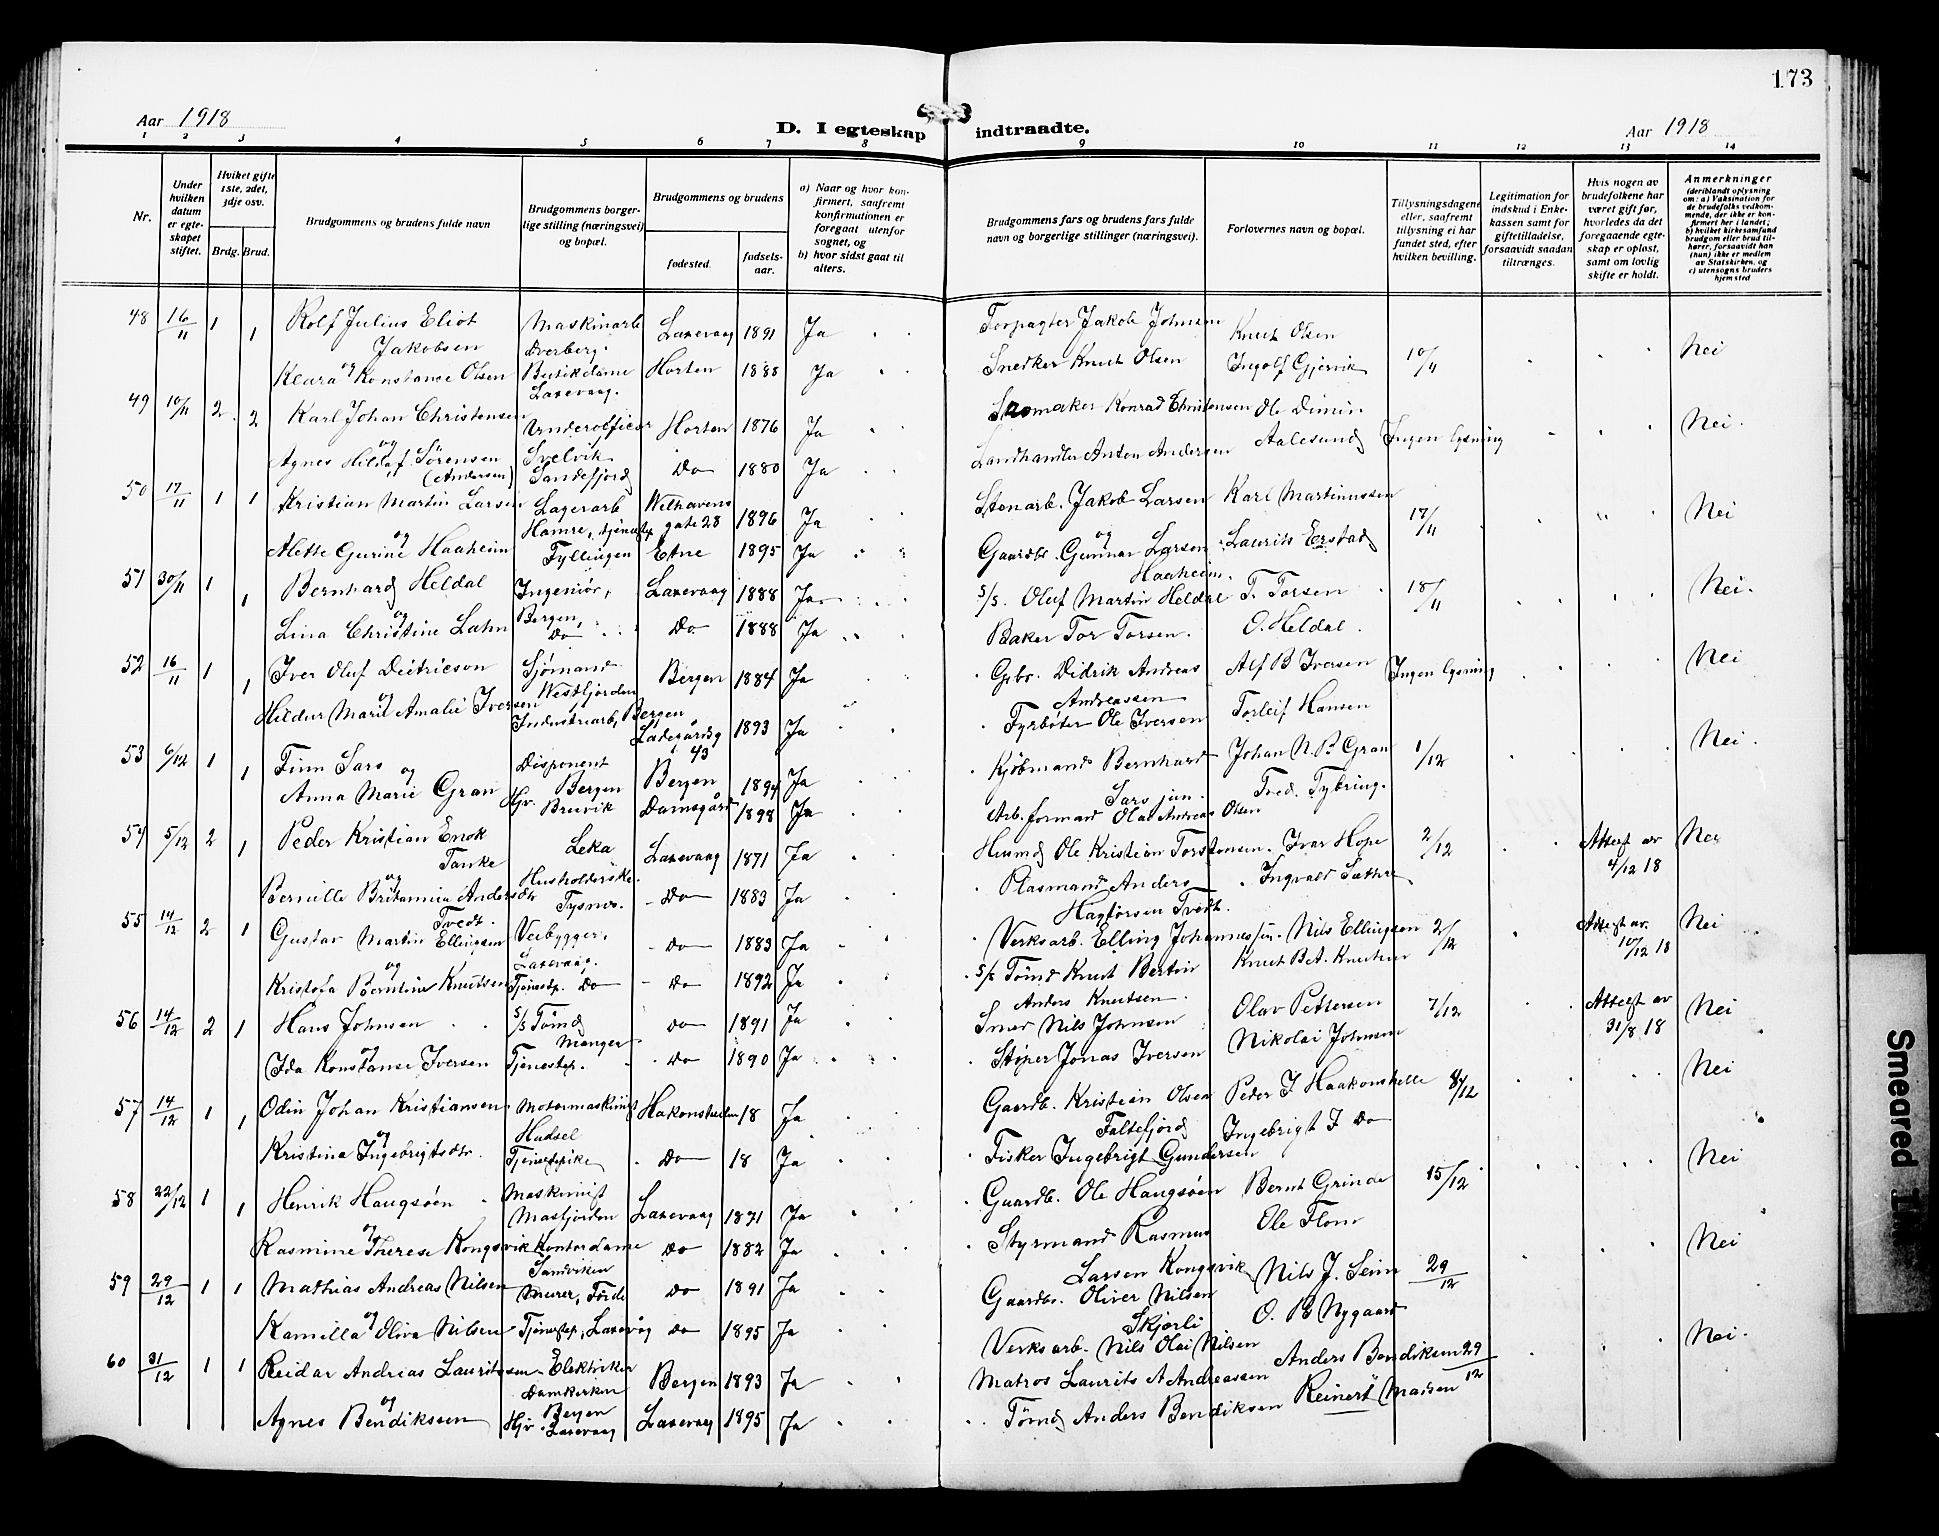 173
Aar 1918
D. I egteskap indtraadte.
Aar 1918
1 2 3 4 5 6 7 8 9 10 11 12 13 14
Nr.
Under hvilken datum er egteskapet stiftet.
Hviket gifte 1ste, 2det, 3dje osv.
Brdg. Brud.
Brudgommens og brudens fulde navn
Brudgommens borgerlige stilling (næringsvei) og bopæl.
Brudgommens og brudens
fødested.
fødselsaar.
a) Naar og hvor konfirmert, saafremt konfirmationen er foregaat utenfor sognet, og
b) hvor sidst gaat til alters.
Brudgommens fars og brudens fars fulde navn og borgerlige stillinger (næringsvei).
Forlovernes navn og bopæl.
Tillysningsdagene eller, saafremt tillysning ei har fundet sted, efter hvilken bevilling.
Legitimation for indskud i Enkekassen samt for giftetilladelse, forsaavidt saadan tiltrænges.
Hvis nogen av brudefolkene har været gift før, hvorledes da det foregaaende egteskap er opløst, samt om lovlig skifte er holdt.
Anmerkninger (deriblandt oplysning om: a) Vaksination for de brudefolks vedkommende, der ikke er konfirmert her i landet; b) hvilket kirkesamfund brudgom eller brud tilhører, forsaavidt han (hun) ikke er medlem av Statskirken, og c) utensogns bruders hjemsted
48 16/11 1 1 Rolf Julius Eliot Jakobsen Maskinarb Laxevaag 1891 Ja Forpagter Jakob Johnsen Knut Olsen 10/11 Nei
og Klara Konstanse Olsen Butikdame Laxevaag. Horten 1888 Ja Snedker Knut Olsen Ingolf Gjervik
49 10/11 2 2 Karl Johan Christensen Underofficer Svelvik Horten 1876 Ja Skomaker Konrad Christensen Ole Dimin Aalesund Ingen lysning Nei.
og Agnes Hilda f. Sørensen (Andersen) Sandefjord Do 1880 Ja Landhandler Anton Andersen
50 17/11 1 1 Kristian Martin Larsen Lagerarb Welhavens gate 28 1896 Ja Stenarb. Jakob Larsen Karl Martinussen 17/11 Nei
og Alette Gurine Haaheim Hamre, tjenestep Fyllingen Etne 1895 Ja Gaardbr. Gunnar Larsen Haaheim. Laurits Erstad
51 30/11 1 1 Bernhard Heldal Ingeniør, Bergen, Laxevaag 1888 Ja S/S. Oluf Martin Heldal T. Torsen 18/11 Nei.
og Lina Christine Lahn Do Do 1888 Ja Baker Tor Torsen. O. Heldal.
52 16/11 1 1 Iver Oluf Deitricson Sjømand Westfjorden Bergen 1884 Ja Gbr. Didrik Andreas Andreassen Alf B Iversen Ingen lysning Nei
og Hildur Marie Amalie Iversen Industriarb, Bergen Ladegårdsg 43 1893 Ja Fyrbøter Ole Iversen Torleif Hansen
53 6/12 1 1 Finn Sars Disponent Bergen Bergen 1894 Ja Kjøbmand Bernhard Sars jun. Johan N. B. Gran 1/12 Nei.
og Anna Marie Gran Hjv. Bruvik Damsgård 1898 Ja Arb. formand Olai Andreas Olsen Fred. Tybring.
54 5/12 2 1 Peder Kristian Enok Tanke Leka Laxevaag 1871 Ja Husmd Ole Kristian Torstensen. Ivar Hope 2/12 Attest av 4/12 18 Nei
og Bernille Britannia Andersdtr Tvedt. Husholderske. Tysnes. Do 1883 Ja Plasmand Anders Hagtorsen Tvedt. Ingvald Sæthre
55 14/12 2 1 Gustav Martin Ellingsen Veibygger, Laxevaag. do 1883 Ja Verksarb. Elling Johannessen. Nils Ellingsen 2/12 Attest av. 10/12 18 Nei
og Kristofa Berntine Knutsen Tjenestp. Do Do 1892 Ja S/S Tømd Knut Bertin Anders Knutsen. Knut Bet. Knutsen
56 14/12 2 1 Hans Johnsen S/S Tømd Manger do 1891 Ja Smed Nils Johnsen Olav Pettersen 7/12 Attest av 31/8 18 Nei
og Ida Konstanse Iversen Tjenestep. do 1890 Ja Støper Jonas Iversen Nikolai Johnsen
57 14/12 1 1 Odin Johan Kristiansen Motormaskinist Hadsel Hakonshellen 18 Ja Gaardb. Kristian Olsen Faltefjord Peder I Haakonshelle 8/12 Nei
og Kristina Ingebrigtsdtr. Tjenestepike Do 18 Ja Fisker Ingebrigt Gundersen Ingebrigt I Do
58 22/12 1 1 Henrik Haugsøen Maskinist Masfjorden Laxevaag 1871 Ja Gaardb. Ole Haugsøen Bernt Grinde 15/12 Nei
og Rasmine Therese Kongsvik Kontordame Sandviken Do 1882 Ja Styrmand Rasmus Larsen Kongsvik Ole Flom
59 29/12 1 1 Mathias Andreas Nilsen Murer, Førde do 1891 Ja Gaardbr. Oliver Nilsen Skjerli Nils J. Seim 29/12 Nei
og Kamilla Oliva Nilsen Tjenestep, Laxevåg do 1895 Ja Verksarb. Nils Olai Nilsen O. B. Nygaard
60 31/12 1 1 Reidar Andreas Lauritssen Elektriker Domkirken Bergen Bergen 1893 Ja Matros Laurits A Andreassen Anders Bendiksen 29/12 Nei.
og Agnes Bendikssen Hjv. Laxevaag Laxevaag 1895 Ja Tømd Anders Bendiksen Reinert Madsen
Smeared